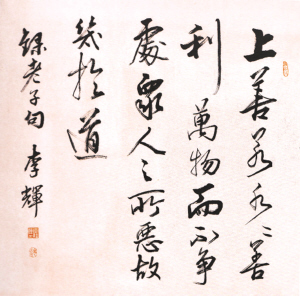 上善若水水善
利萬物而不争
處眾人之所惡故
幾於道
錄老子句 李輝